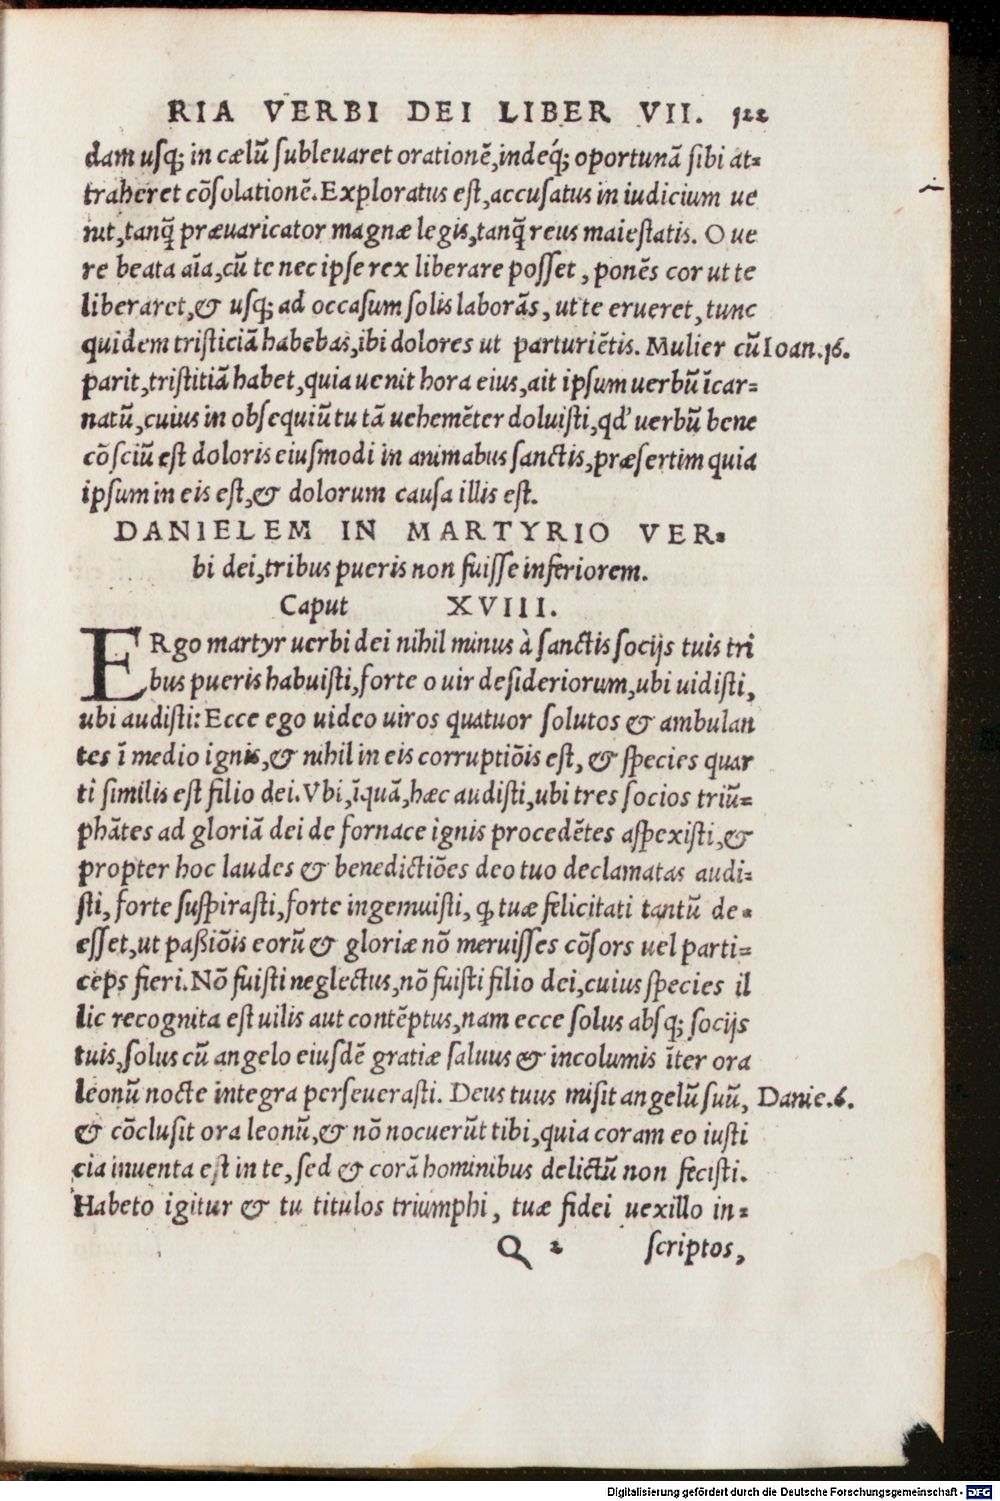 RIA VERBI DEI LIBER VII. 122
dam usq; in cælũ subleuaret orationẽ,indeq́; oportunã sibi at=
traheret cõsolationẽ.Exploratus est,accusatus in iudicium ue
nit,tanq̃ præuaricator magnæ legis,tanq̃ reus maiestatis. O ue
re beata aĩa,cũ te nec ipse rex liberare posset, ponẽs cor ut te
liberaret,& usq; ad occasum solis laborãs, ut te erueret, tunc
quidem tristiciã habebas,ibi dolores ut parturiẽtis. Mulier cũ Ioan.16.
parit,tristitiã habet,quia uenit hora eius,ait ipsum uerbũ ĩcar=
natũ,cuius in obsequiũ tu tã uehemẽter doluisti,qd' uerbũ bene
cõsciũ est doloris eiusmodi in animabus sanctis,præsertim quia
ipsum in eis est,& dolorum causa illis est.
DANIELEM IN MARTYRIO VER=
bi dei,tribus pueris non fuisse inferiorem.
Caput XVIII.
ERgo martyr uerbi dei nihil minus à sanctis socijs tuis tri
bus pueris habuisti,forte o uir desideriorum,ubi uidisti,
ubi audisti: Ecce ego uideo uiros quatuor solutos & ambulan
tes ĩ medio ignis,& nihil in eis corruptiõis est, & species quar
ti similis est filio dei.Vbi,ĩquã,hæc audisti,ubi tres socios triũ=
phãtes ad gloriã dei de fornace ignis procedẽtes aspexisti,&
propter hoc laudes & benedictiões deo tuo declamatas audi=
sti, forte suspirasti,forte ingemuisti, q̃ tuæ felicitati tantũ de=
esset,ut paßiõis eorũ & gloriæ nõ meruisses cõsors uel parti=
ceps fieri.Nõ fuisti neglectus,nõ fuisti filio dei,cuius species il
lic recognita est uilis aut contẽptus,nam ecce solus absq; socijs
tuis,solus cũ angelo eiusdẽ gratiæ saluus & incolumis ĩter ora
leonũ nocte integra perseuerasti. Deus tuus misit angelũ suũ, Danie.6.
& cõclusit ora leonũ,& nõ nocuerũt tibi,quia coram eo iusti
cia inuenta est in te, sed & corã hominibus delictũ non fecisti.
Habeto igitur & tu titulos triumphi, tuæ fidei uexillo in=
Q 2 scriptos,
Digitalisierung gefördert durch die Deutsche Forschungsgemeinschaft - DFG